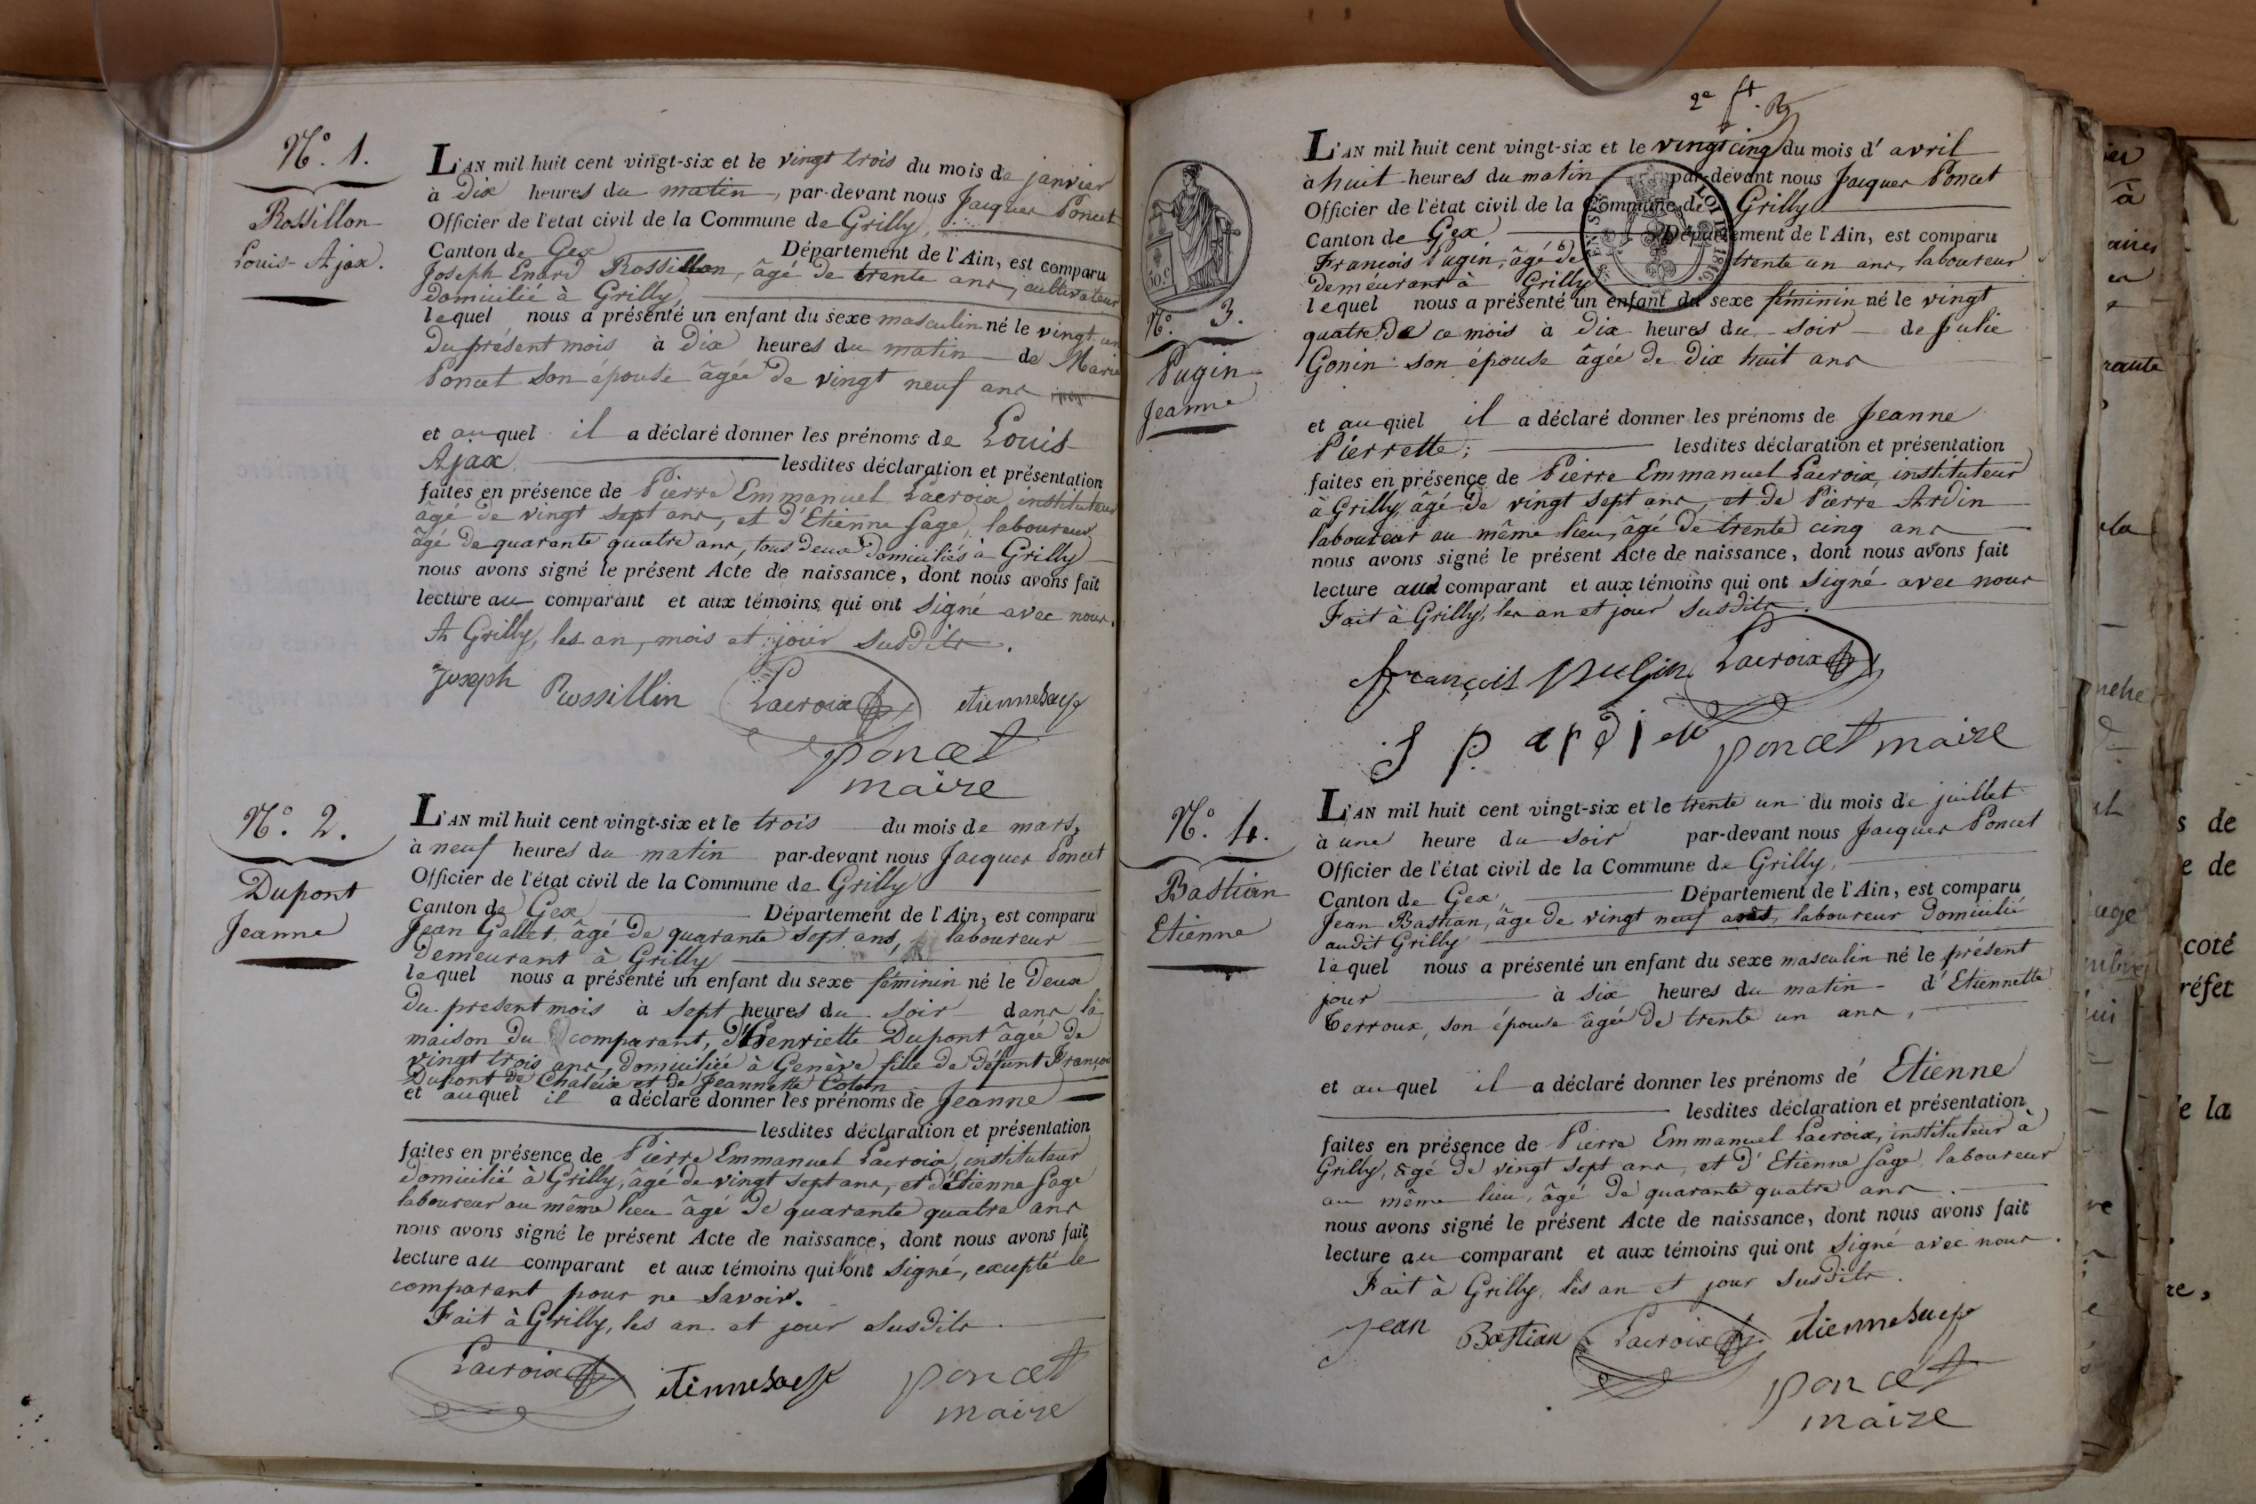 N.° 1.
Rossillon
Louis-Ajax.
L'AN mil huit cent vingt-six et le vingt trois du mois de janvier
à Dix heures du matin, par-devant nous Jacques Poncet
Officier de l'état civil de la Commune de Grilly,
Canton de Gex Département de l'Ain, est comparu
Joseph Rossillon, âgé de trente ans, cultivateur
domicilié à Grilly,
lequel nous a présenté un enfant du sexe masculin né le vingt un
du présent mois à Dix heures du matin de Marie
Poncet son épouse âgée de vingt neuf ans
et auquel il a déclaré donner les prénoms de Louis
Ajax lesdites déclaration et présentation
faites en présence de Pierre Emmanuel Lacroix instituteur
âgé de vingt sept ans, et d'Etienne Sage, laboureur
âgé de quarante quatre ans, tous deux domiciliés à Grilly
nous avons signé le présent Acte de naissance, dont nous avons fait
lecture au comparant et aux témoins qui ont signé avec nous.
A Grilly, les an, mois et jour susdits.
Joseph Rossillin Lacroix etienne Sage
poncet
maire
N.° 2.
Dupont
Jeanne
L'AN mil huit cent vingt-six et le trois du mois de mars,
à neuf heures du matin par-devant nous Jacques Poncet
Officier de l'état civil de la Commune de Grilly
Canton de Gex Département de l'Ain, est comparu
Jean Gallet âgé de quarante sept ans, laboureur
demeurant à Grilly
lequel nous a présenté un enfant du sexe féminin né le deux
du present mois à sept heures du soir dans la
maison du comparant, d'Henriette Dupont âgée de
vingt trois ans, domiciliée à Genève fille de défunt François
Dupont de et de Jeannette
et auquel il a déclaré donner les prénoms de Jeanne
lesdites déclaration et présentation
faites en présence de Pierre Emmanuel Lacroix, instituteur
domicilié à Grilly, âgé de vingt sept ans, et d'Etienne Sage
laboureur au même lieu âgé de quarante quatre ans
nous avons signé le présent Acte de naissance, dont nous avons fait
lecture au comparant et aux témoins qui ont signé, excepté le
comparant pour ne savoir.
Fait à Grilly, les an et jour susdits.
Lacroix etienne Sage poncet
maire
2e
30.c
N.° 3.
Pugin
Jeanne
L'AN mil huit cent vingt-six et le vingt cinq du mois d'avril
à huit heures du matin par-devant nous Jacques Poncet
Officier de l'état civil de la Commune de Grilly
Canton de Gex Département de l'Ain, est comparu
François Pugin, âgé de trente un ans, laboureur
demeurant à Grilly
lequel nous a présenté un enfant du sexe féminin né le vingt
quatre de ce mois à dix heures du soir de Julie
Gonin son épouse âgée de dix huit ans
et auquel il a déclaré donner les prénoms de Jeanne
Pierrette; lesdites déclaration et présentation
faites en présence de Pierre Emmanuel Lacroix, instituteur
à Grilly, âgé de vingt sept ans, et de Pierre Ardin
laboureur au même lieu, âgé de trente cinq ans
nous avons signé le présent Acte de naissance, dont nous avons fait
lecture au comparant et aux témoins qui ont signé avec nous
Fait à Grilly, les an et jour susdits.
françois pugin Lacroix
J p ardin poncet maire
N.° 4.
Bastian
Etienne
L'AN mil huit cent vingt-six et le trente un du mois de juillet
à une heure du soir par-devant nous Jacques Poncet
Officier de l'état civil de la Commune de Grilly,
Canton de Gex, Département de l'Ain, est comparu
Jean Bastian, âgé de vingt neuf ans, laboureur domicilié
audit Grilly
lequel nous a présenté un enfant du sexe masculin né le présent
jour à six heures du matin d'Etiennette
Terroux, son épouse âgée de trente un ans,
et auquel il a déclaré donner les prénoms de Etienne
lesdites déclaration et présentation
faites en présence de Pierre Emmanuel Lacroix, instituteur à
Grilly, âgé de vingt sept ans, et d'Etienne Sage laboureur
au même lieu, âgé de quarante quatre ans.
nous avons signé le présent Acte de naissance, dont nous avons fait
lecture au comparant et aux témoins qui ont signé avec nous.
Fait à Grilly, les an et jour susdits.
Jean Bastian Lacroix etienne Sage
poncet
maire